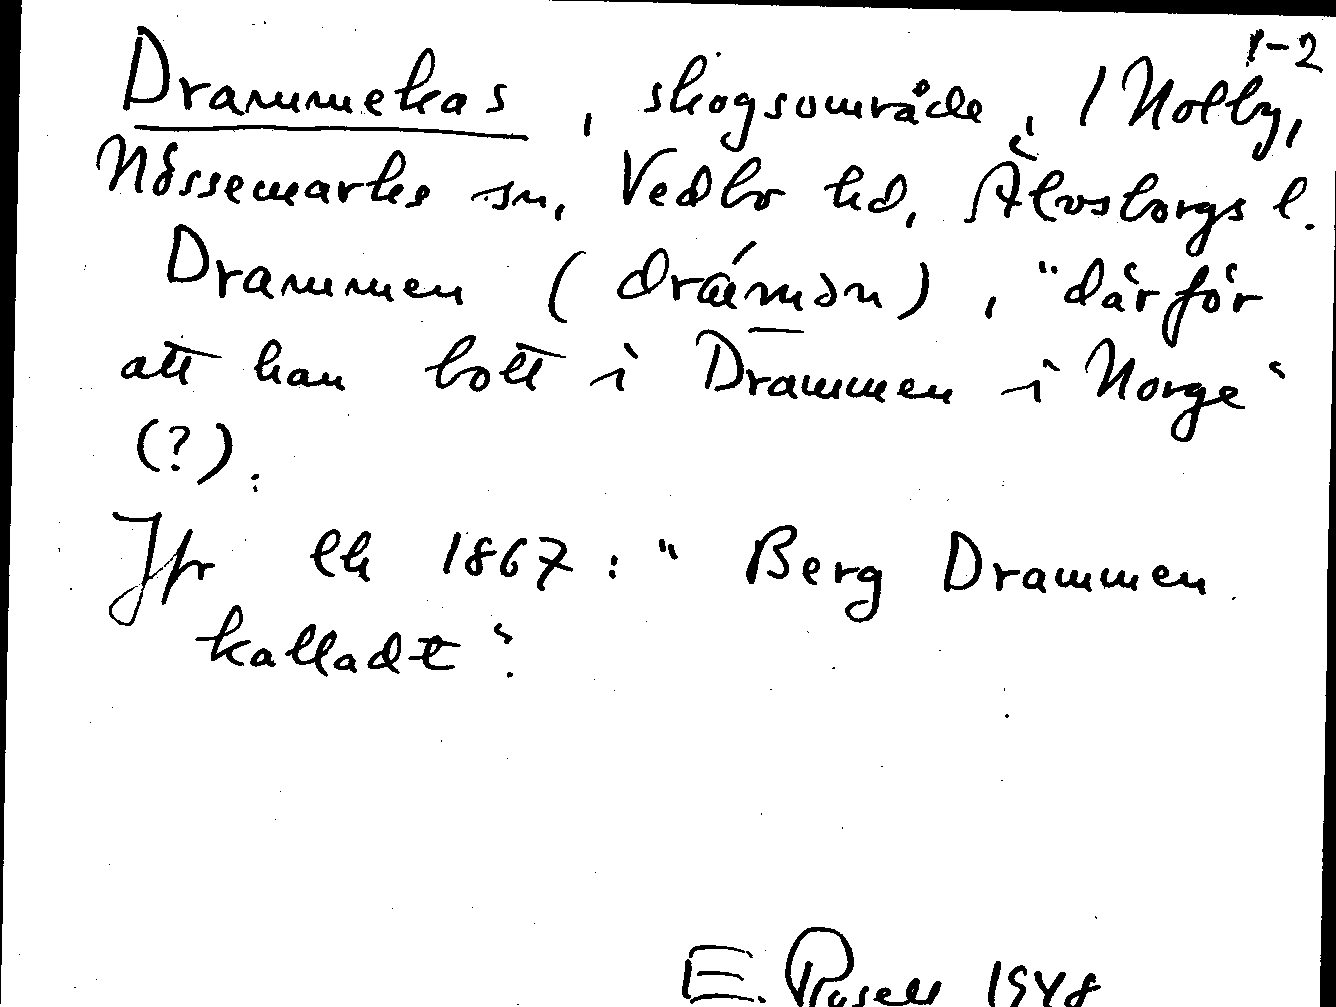 1-2
Drammekas, skogsområde, 1 Nolby,
Nössemarks sn, Vedbo hd, Älvsborgs l.
Drammen (drámən), "därför
att han bott i Drammen i Norge"
(?).
Jfr lk 1867: " Berg Drammen
kalladt".
E. Rosell 1948